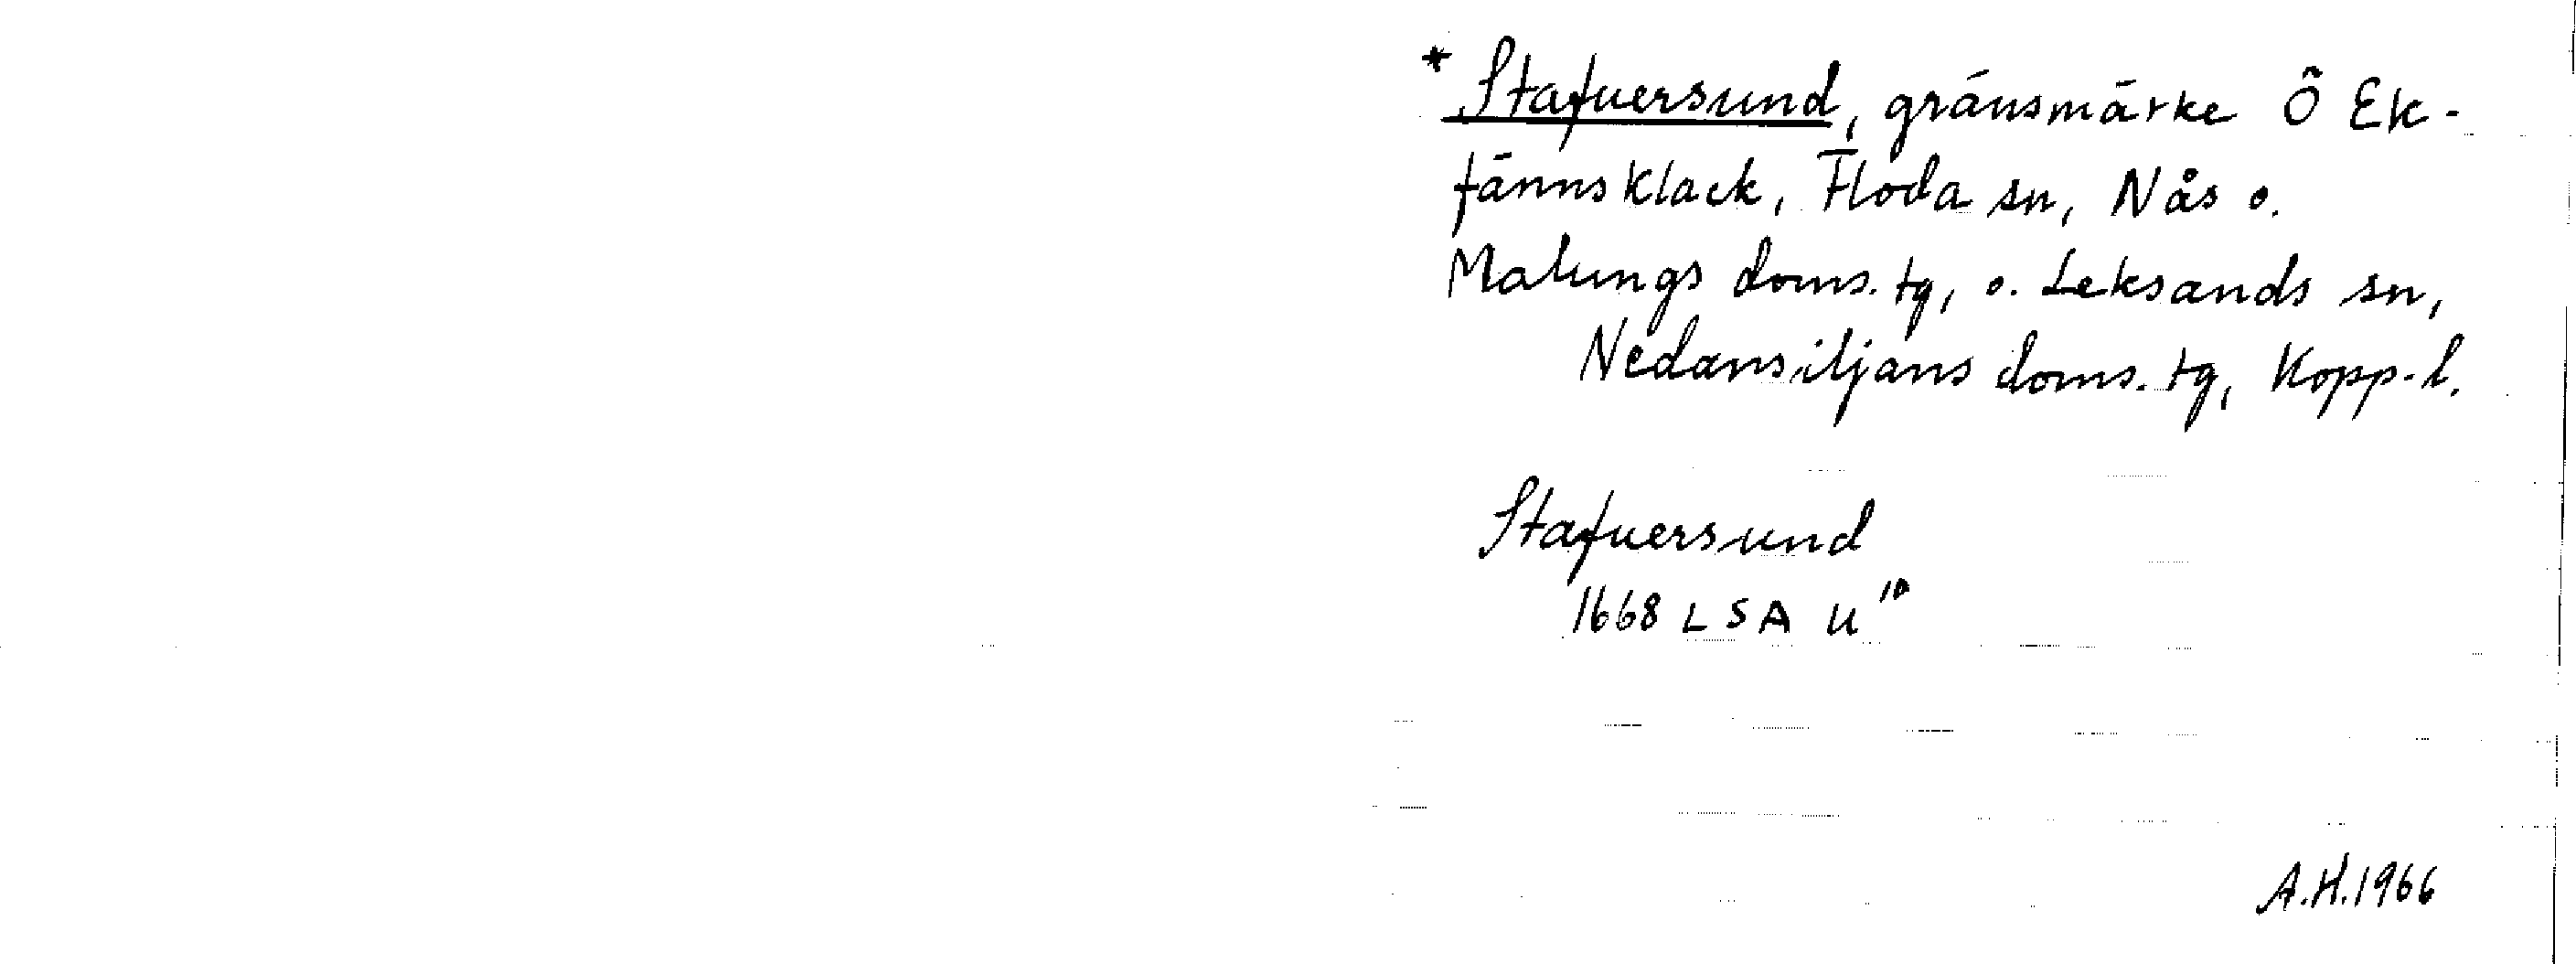 * Stafuersund, gränsmärke Ö Ek-
tänns klack, Floda sn, Nås o.
Malungs doms. tg, o. Leksands sn,
Nedansiljans doms. tg, Kopp. l.
Stafuersund
1668 LSA U¹⁰
A.H. 1966